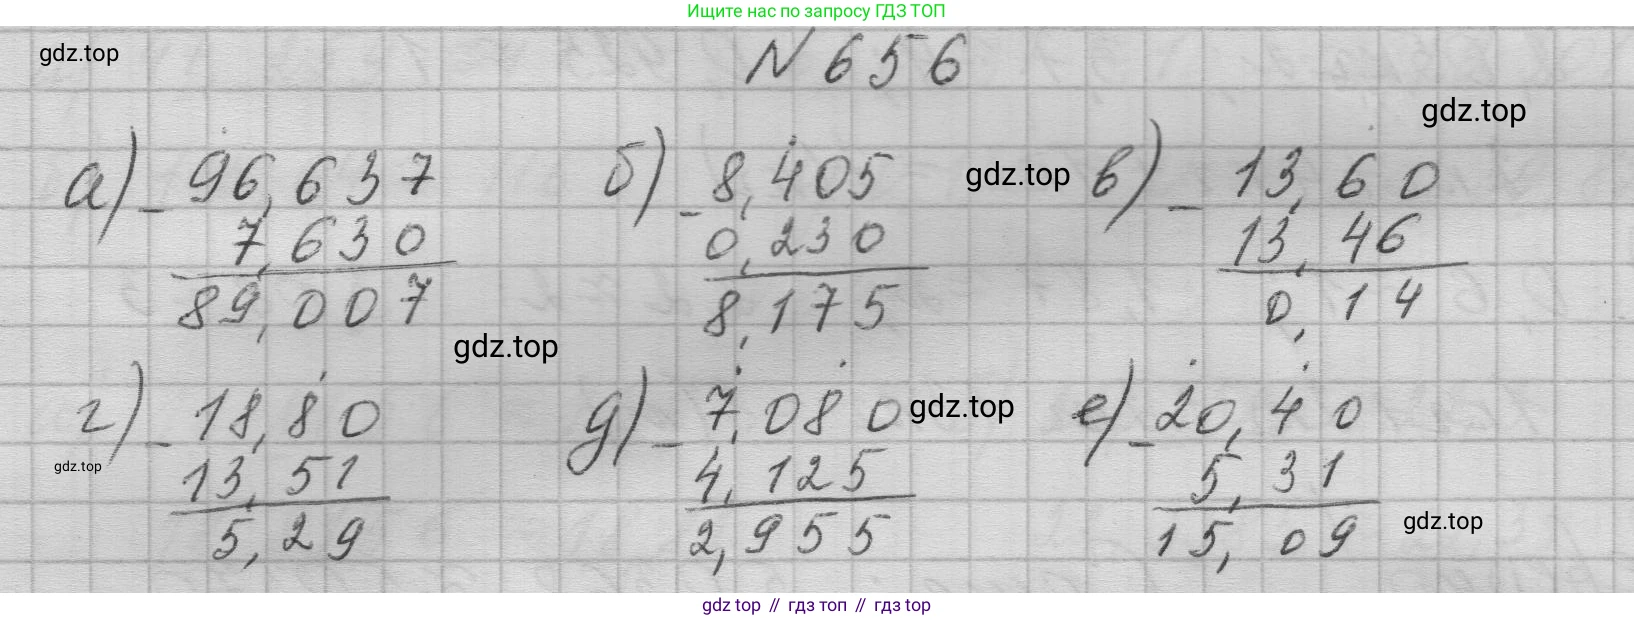 Ищите нас по запросу ГДЗ ТОП
gdz.top
N 656
gdz.top
а) - 96,637 б) - 8,405 gdz.top в) - 13,60
7,630 0,230 13,46
89,007 8,175 0,14
gdz.top
г) - 18,80 д) - 7,080 gdz.top е) - 20,40
gdz.top
13,51 4,125 5,31
5,29 2,955 15,09
gdz.top
gdz top // гдз топ // гдз top